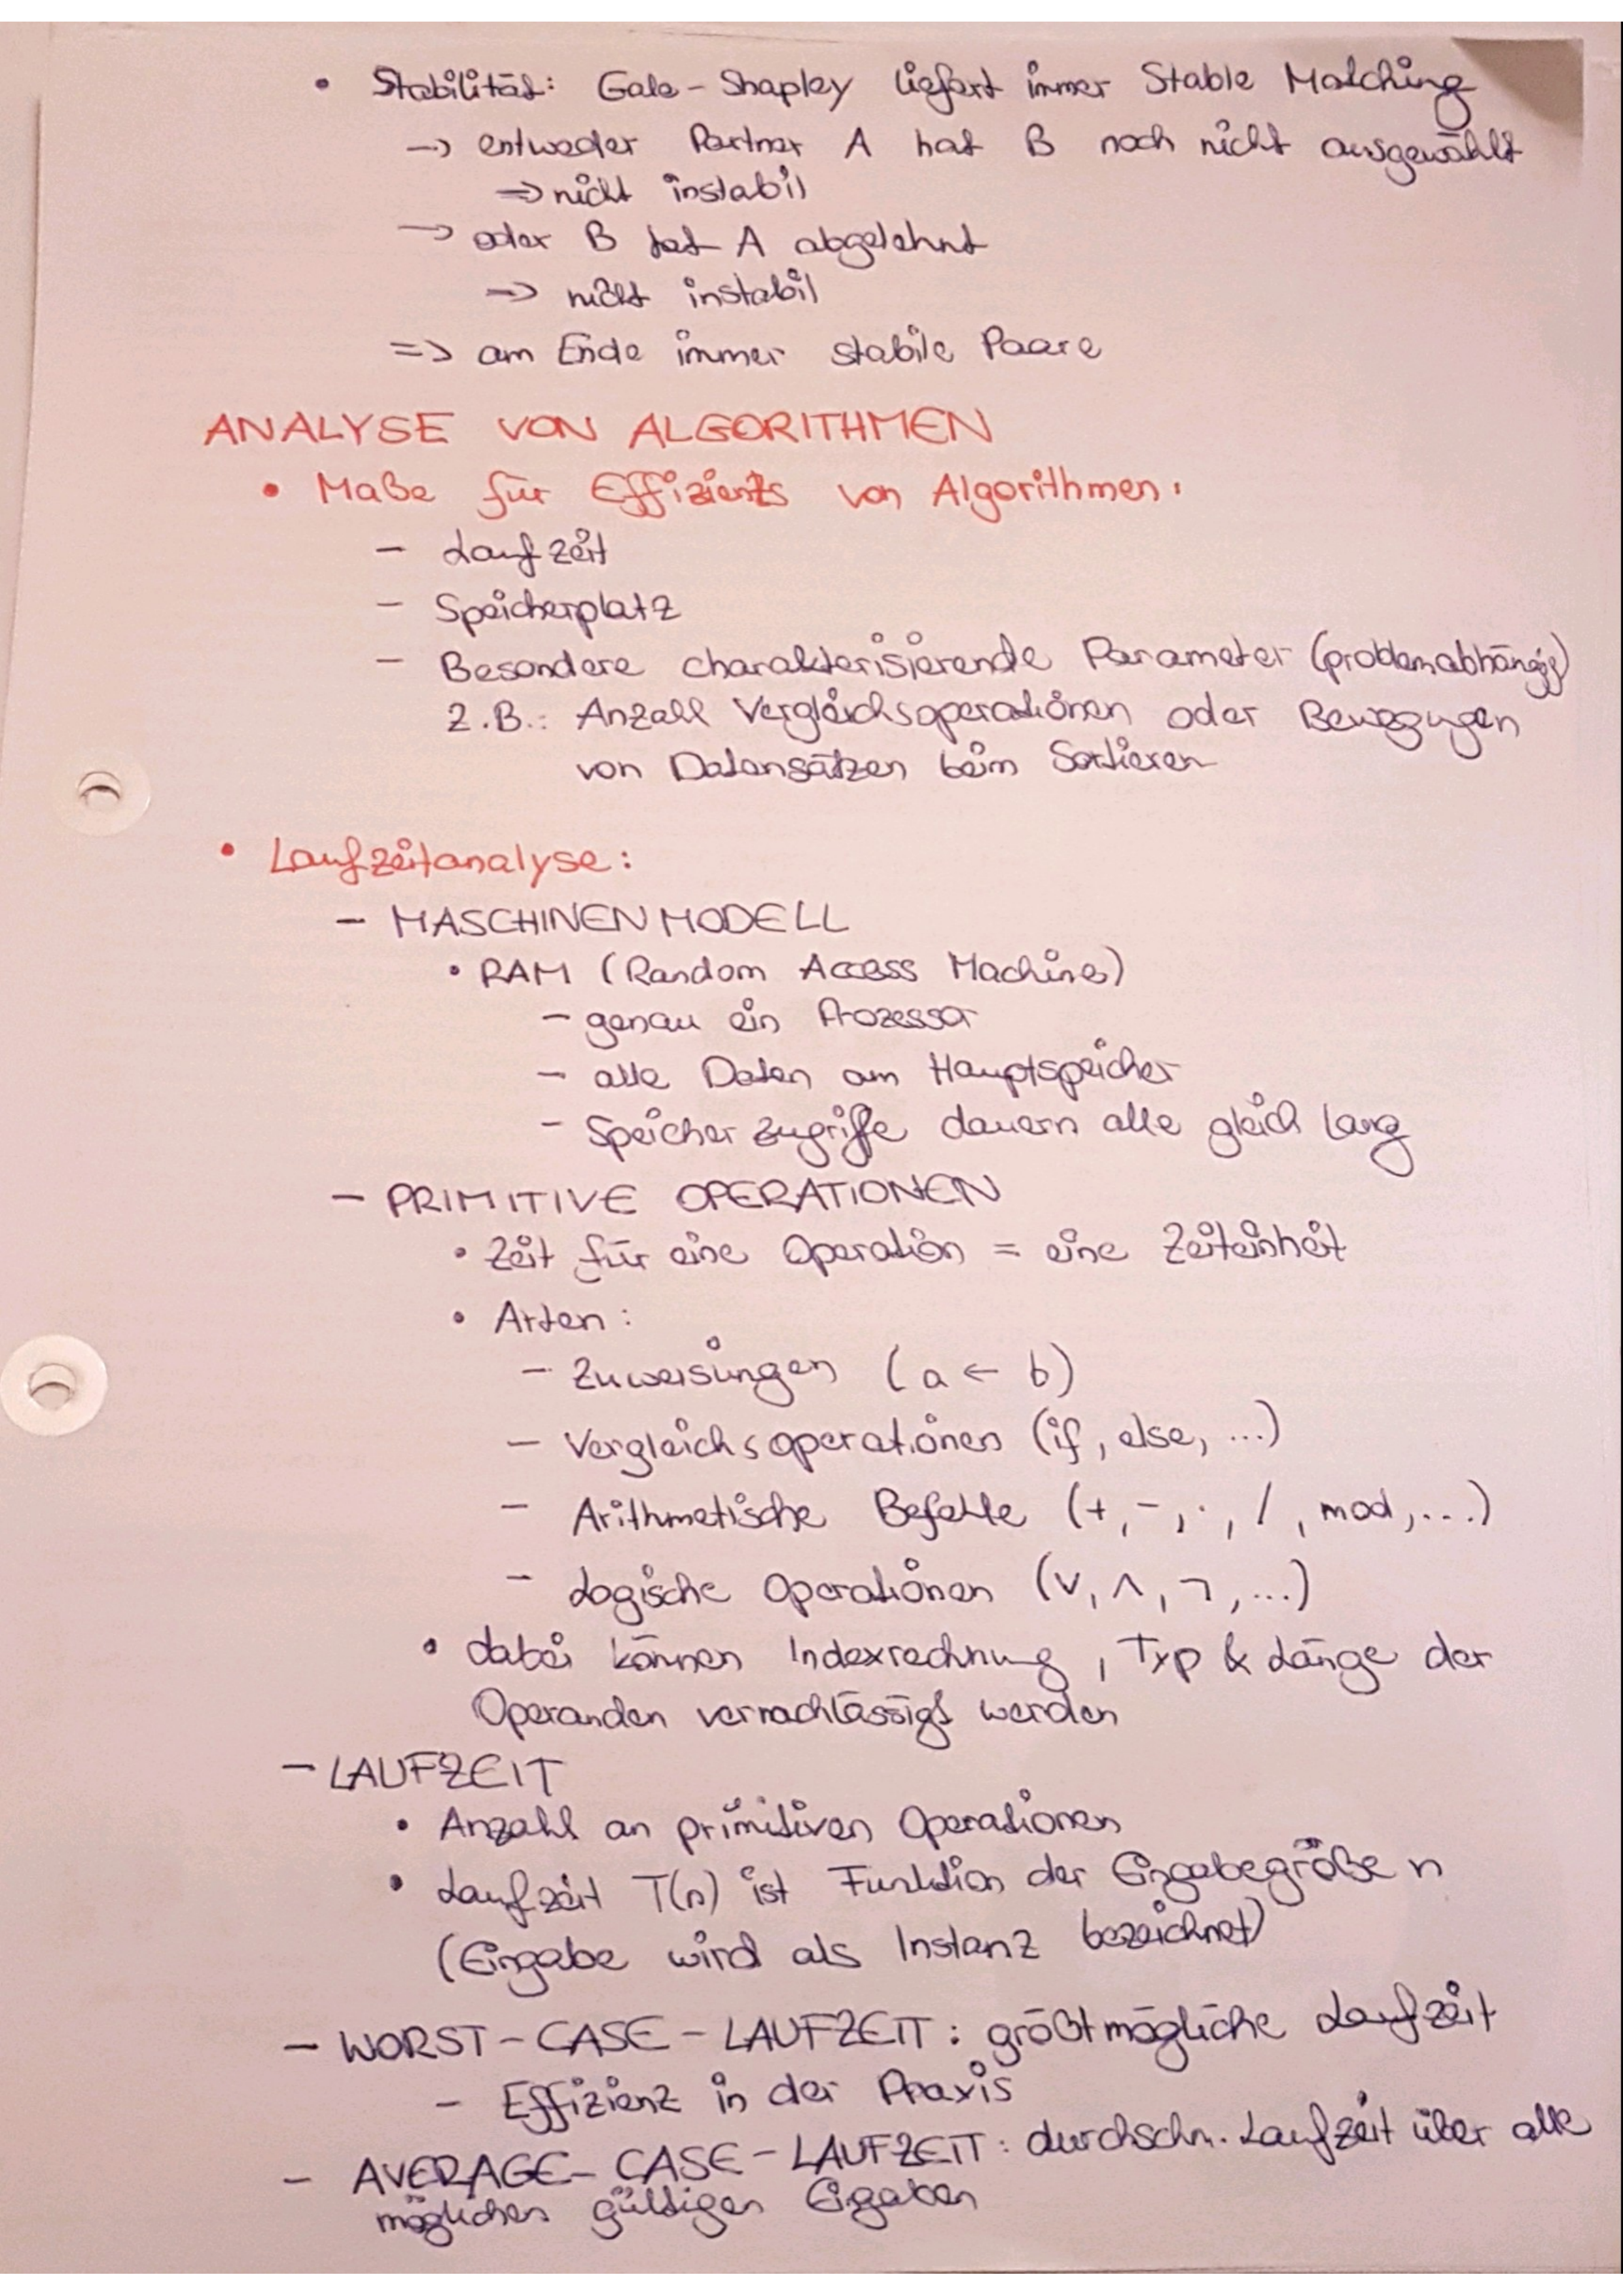 • Stabilität: Gale-Shapley liefert immer Stable Matching
→ entweder Partner A hat B noch nicht ausgewählt
=> nicht instabil
→ oder B hat A abgelehnt
=> nicht instabil
=> am Ende immer stabile Paare
ANALYSE VON ALGORITHMEN
• Maße für Effizients von Algorithmen:
- Laufzeit
- Speicherplatz
- Besondere charakterisierende Parameter (problemabhängig)
z.B.: Anzahl Vergleichsoperationen oder Bewegungen
von Datensätzen beim Sortieren
• Laufzeitanalyse:
- MASCHINENMODELL
• RAM (Random Access Machine)
- genau ein Prozessor
- alle Daten am Hauptspeicher
- Speicherzugriffe dauern alle gleich lang
- PRIMITIVE OPERATIONEN
• Zeit für eine Operation = eine Zeiteinheit
• Arten:
- Zuweisungen (a ← b)
- Vergleichsoperationen (if, else, ...)
- Arithmetische Befehle (+, -, ·, /, mod, ...)
- Logische Operationen (∨, ∧, ¬, ...)
• dabei können Indexrechnung, Typ & Länge der
Operanden vernachlässigt werden
- LAUFZEIT
• Anzahl an primitiven Operationen
• Laufzeit T(n) ist Funktion der Eingabegröße n
(Eingabe wird als Instanz bezeichnet)
- WORST-CASE-LAUFZEIT: größtmögliche Laufzeit
- Effizienz in der Praxis
- AVERAGE-CASE-LAUFZEIT: durchschn. Laufzeit über alle
möglichen gültigen Eigaben